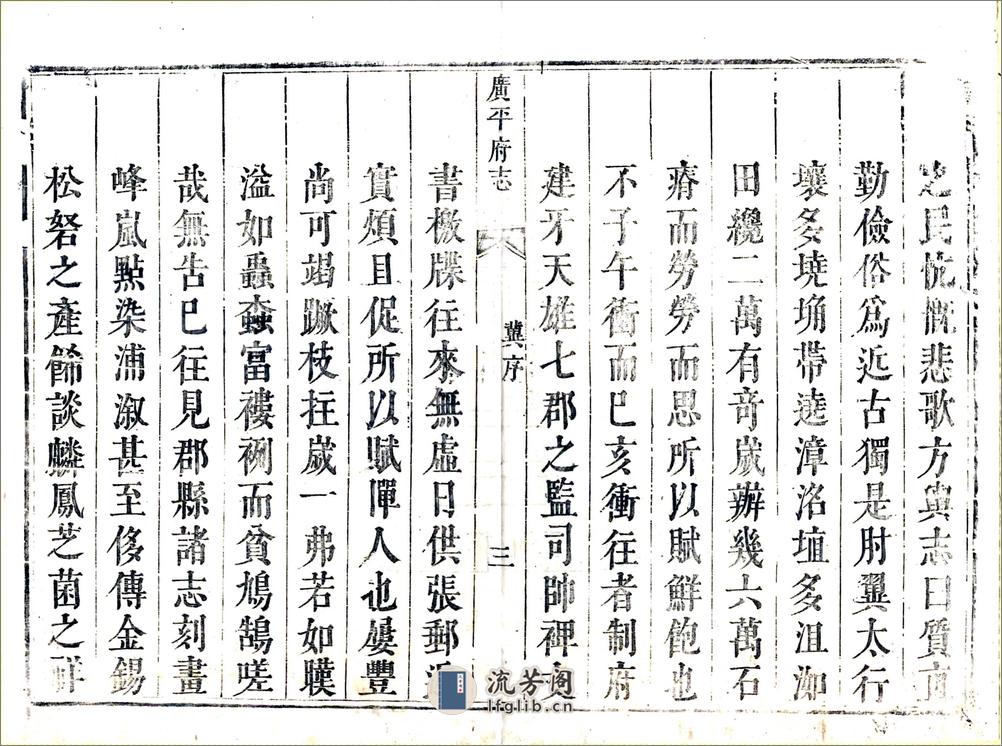 之民忼慨悲歌方輿志曰質直
勤儉俗為近古獨是肘翼太行
壤多墝埆帶遶漳洛埴多沮洳
田纔二萬有奇歲辦幾六萬石
瘠而勞勞而思所以賦鮮飽也
不子午衝而巳亥衝往者制府
建牙天雄七郡之監司帥裨
廣平府志
冀序
三
書檄牒往來無虛日供張郵
實煩且促所以賦憚人也屢豐
尚可竭蹶枝拄歲一弗若如嘆
溢如蟲螙富褸裯而貧鳩鵠嗟
哉無告巳往見郡縣諸志刻畫
峰嵐點染浦溆甚至侈傳金錫
松砮之產餙談麟鳳芝菌之祥
流芳阁
lfglib.cn